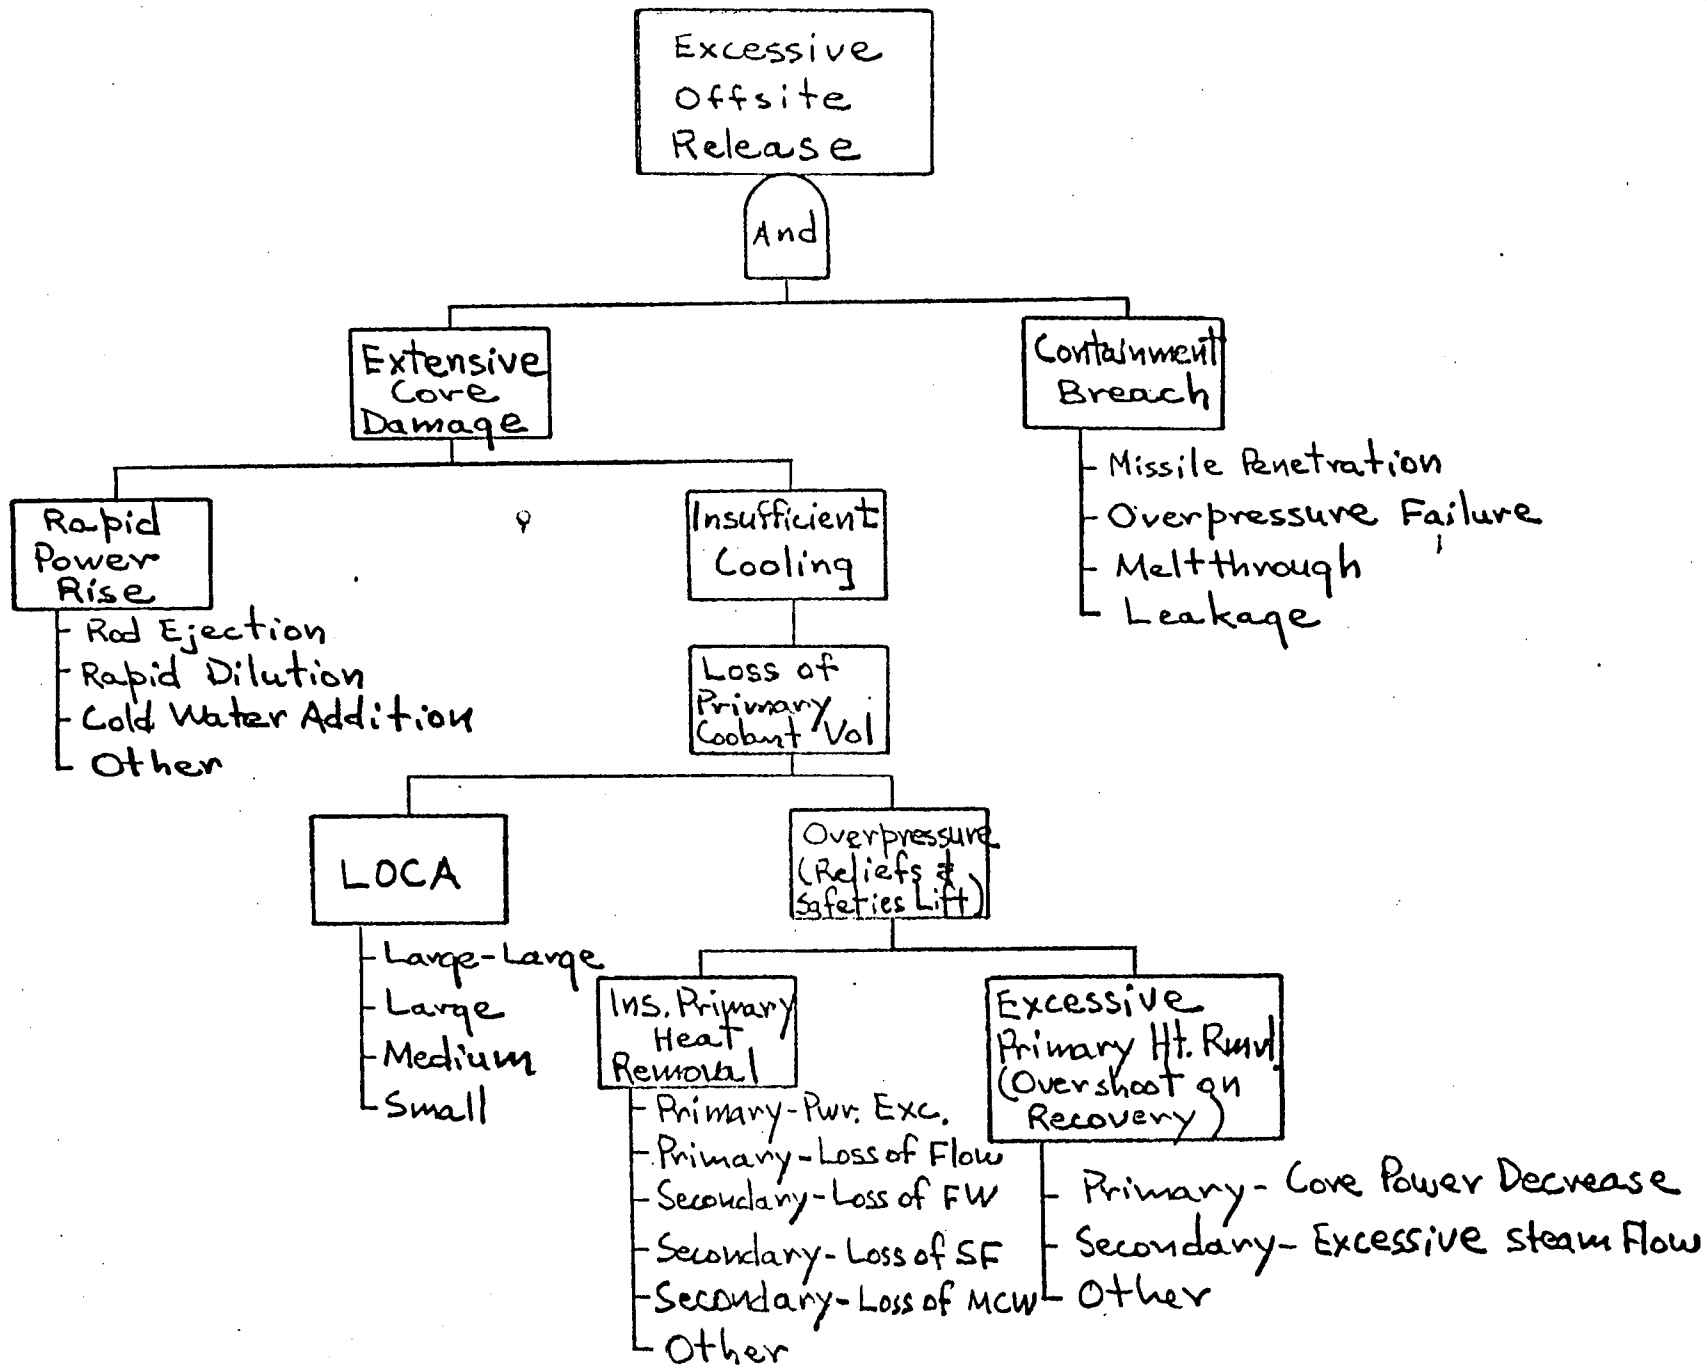 Excessive
Offsite
Release
And
Extensive
Core
Damage
Containment
Breach
Missile Penetration
Overpressure Failure
Meltthrough
Leakage
Rapid
Power
Rise
Rod Ejection
Rapid Dilution
Cold Water Addition
Other
Insufficient
Cooling
Loss of
Primary
Coolant Vol
LOCA
Large-Large
Large
Medium
Small
Overpressure
(Reliefs &
Safeties Lift)
Ins. Primary
Heat
Removal
Primary-Pwr. Exc.
Primary-Loss of Flow
Secondary-Loss of FW
Secondary-Loss of SF
Secondary-Loss of MCW
Other
Excessive
Primary Ht. Rmvl
(Overshoot on
Recovery)
Primary-Core Power Decrease
Secondary-Excessive Steam Flow
Other